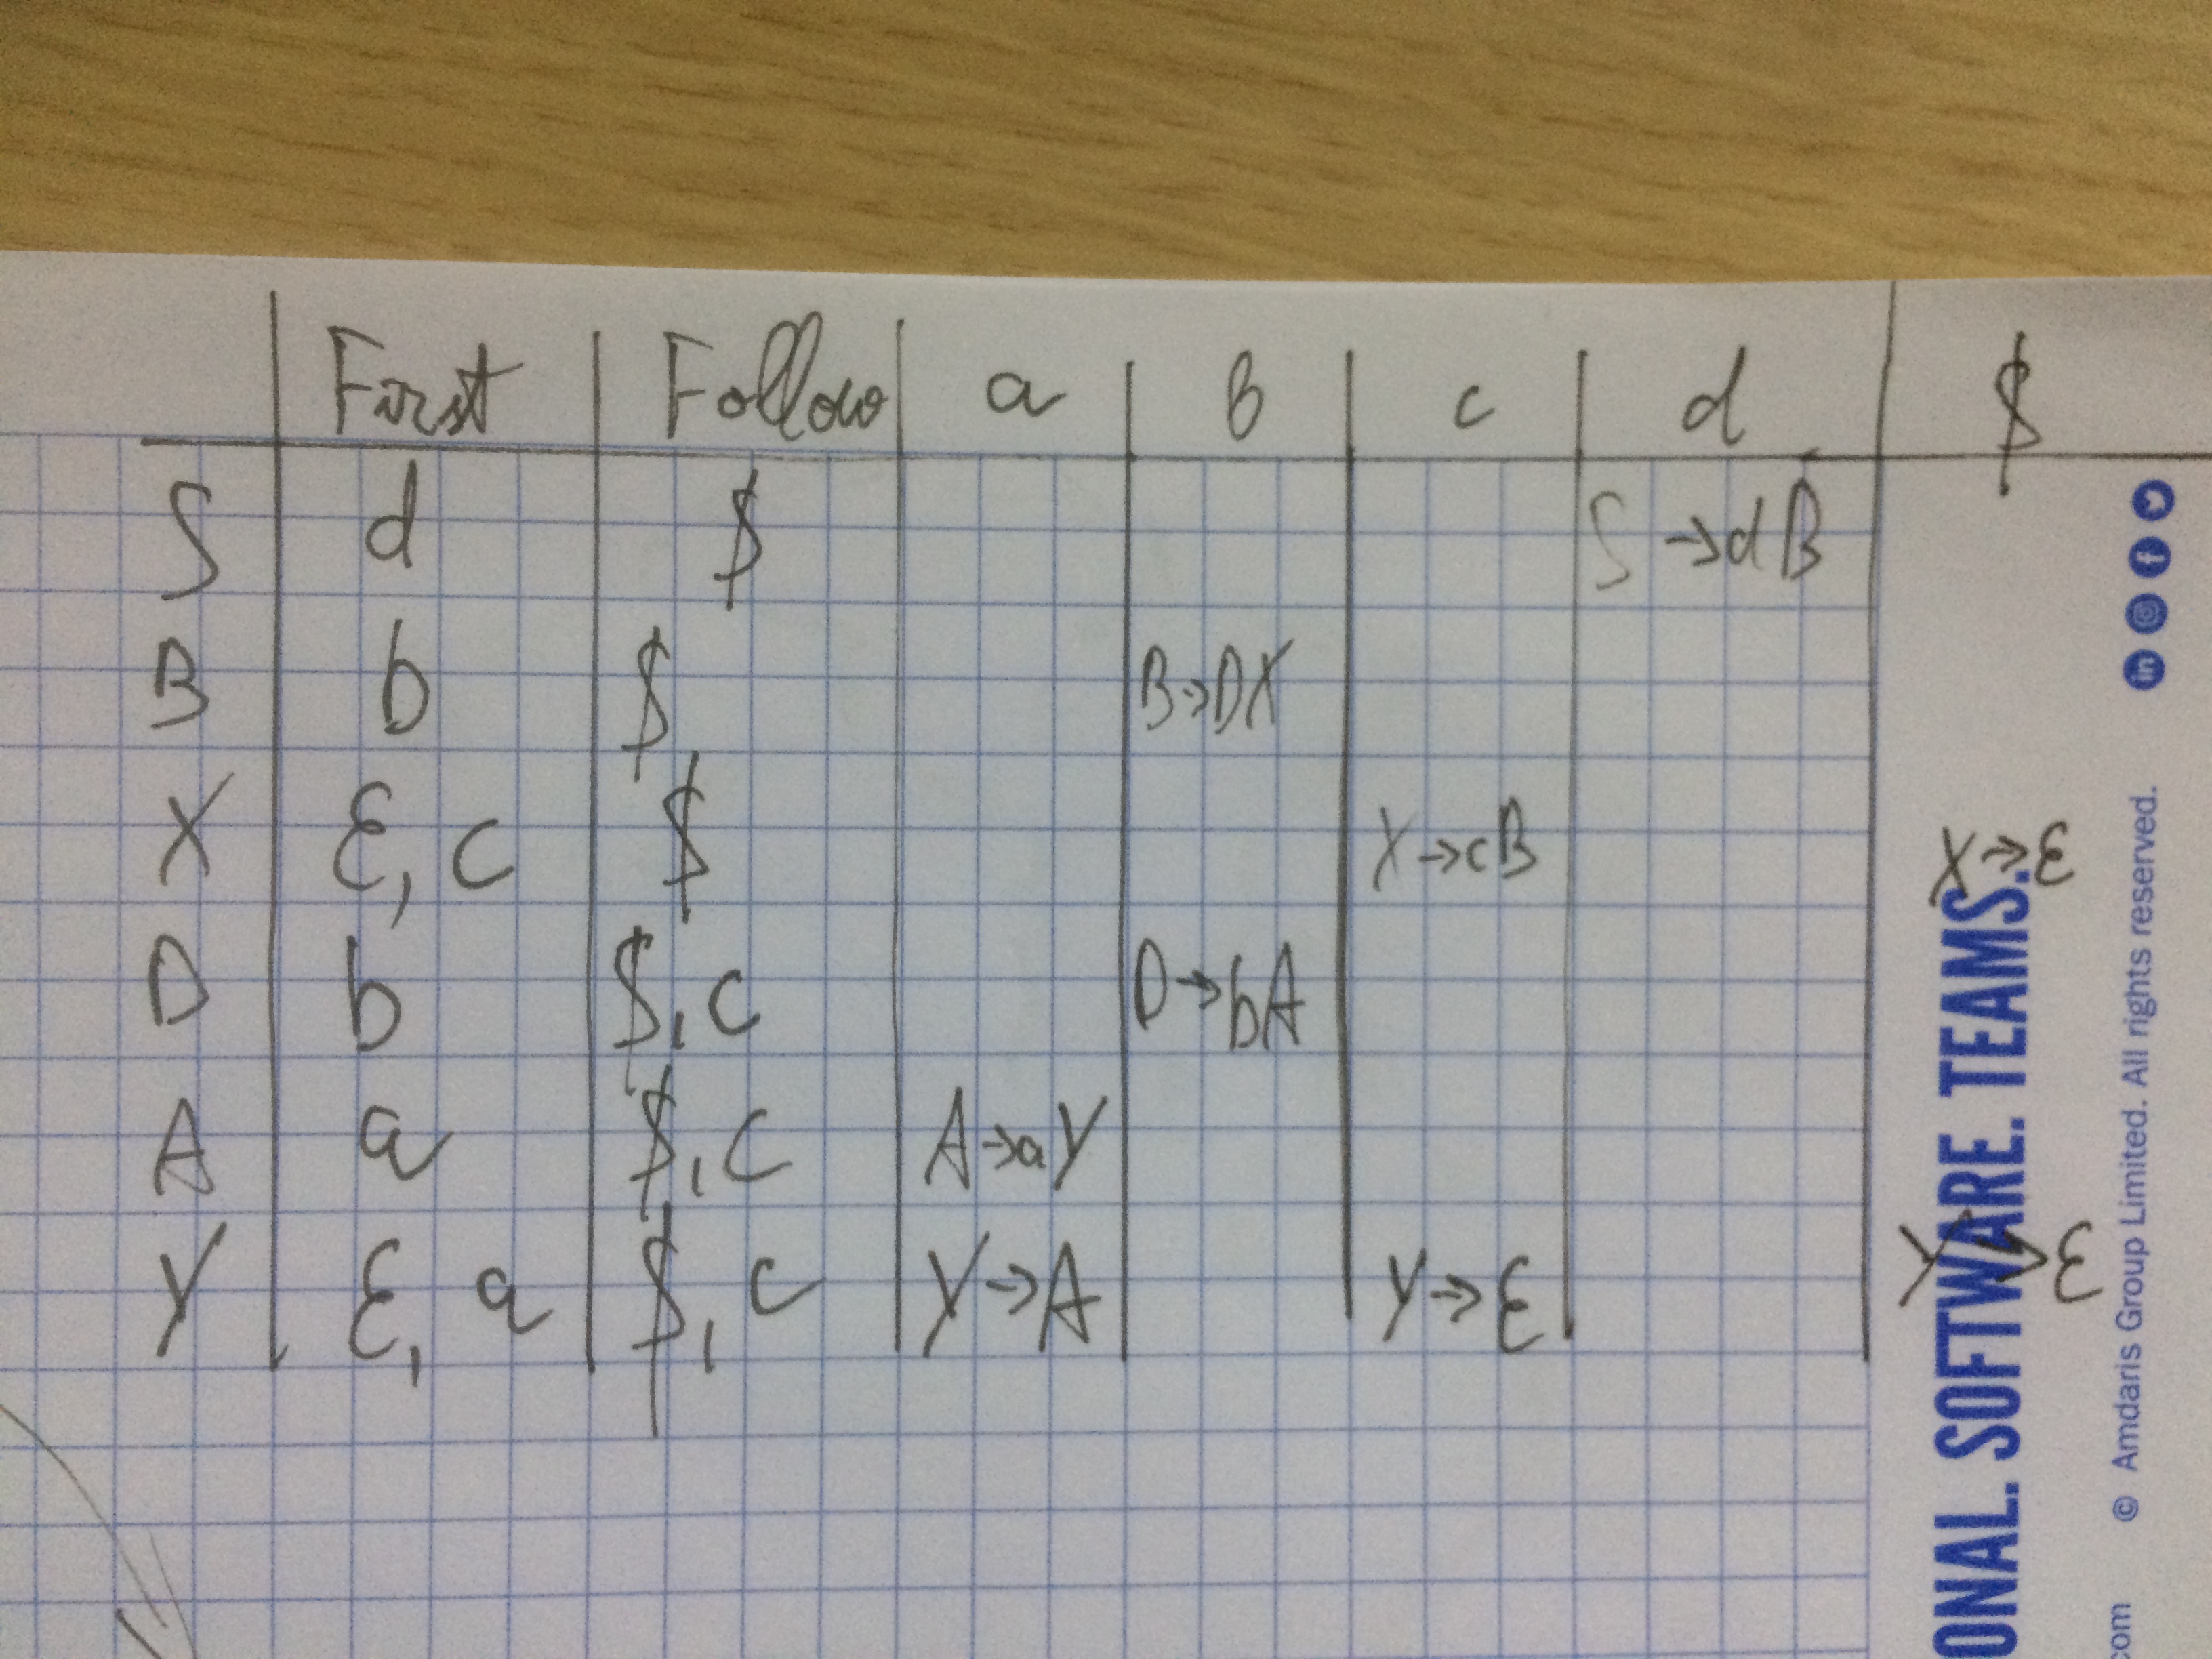 First Follow a b c d $
S d $ S → dB
B b $ B → DX
X ε, c $ X → cB X → ε
D b $, c D → bA
A a $, c A → aY
Y ε, a $, c Y → A Y → ε Y → ε
ONAL. SOFTWARE. TEAMS.
com © Amdaris Group Limited. All rights reserved.